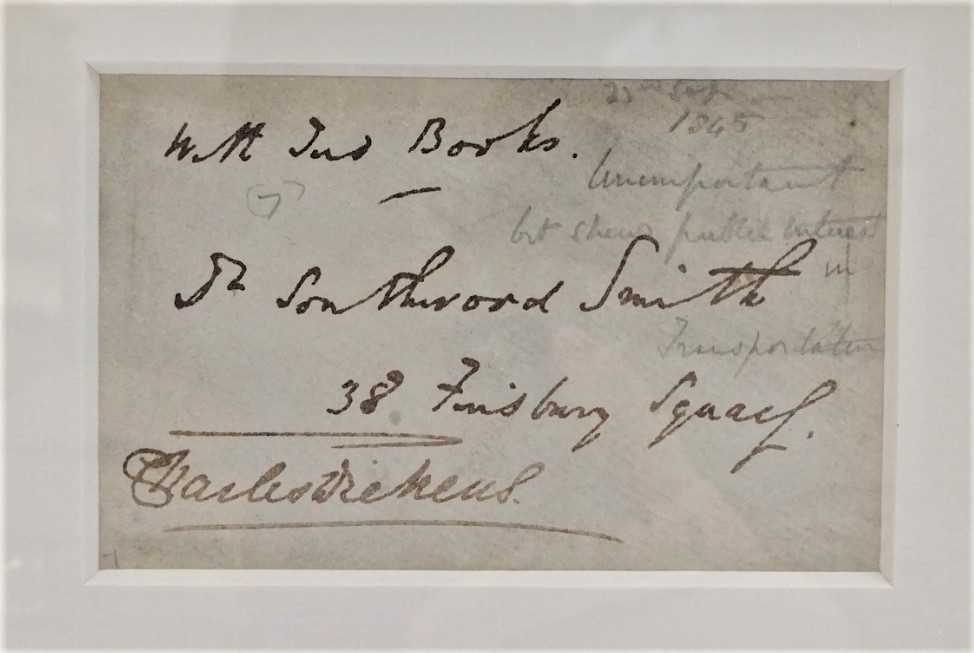 With Two Books.
Dr Southwood Smith
38 Finsbury Square.
Charles Dickens.
1845
Unimportant
but shews public interest
in
Transportation